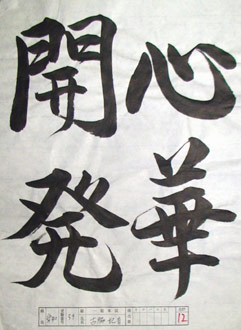 心華
開発
12